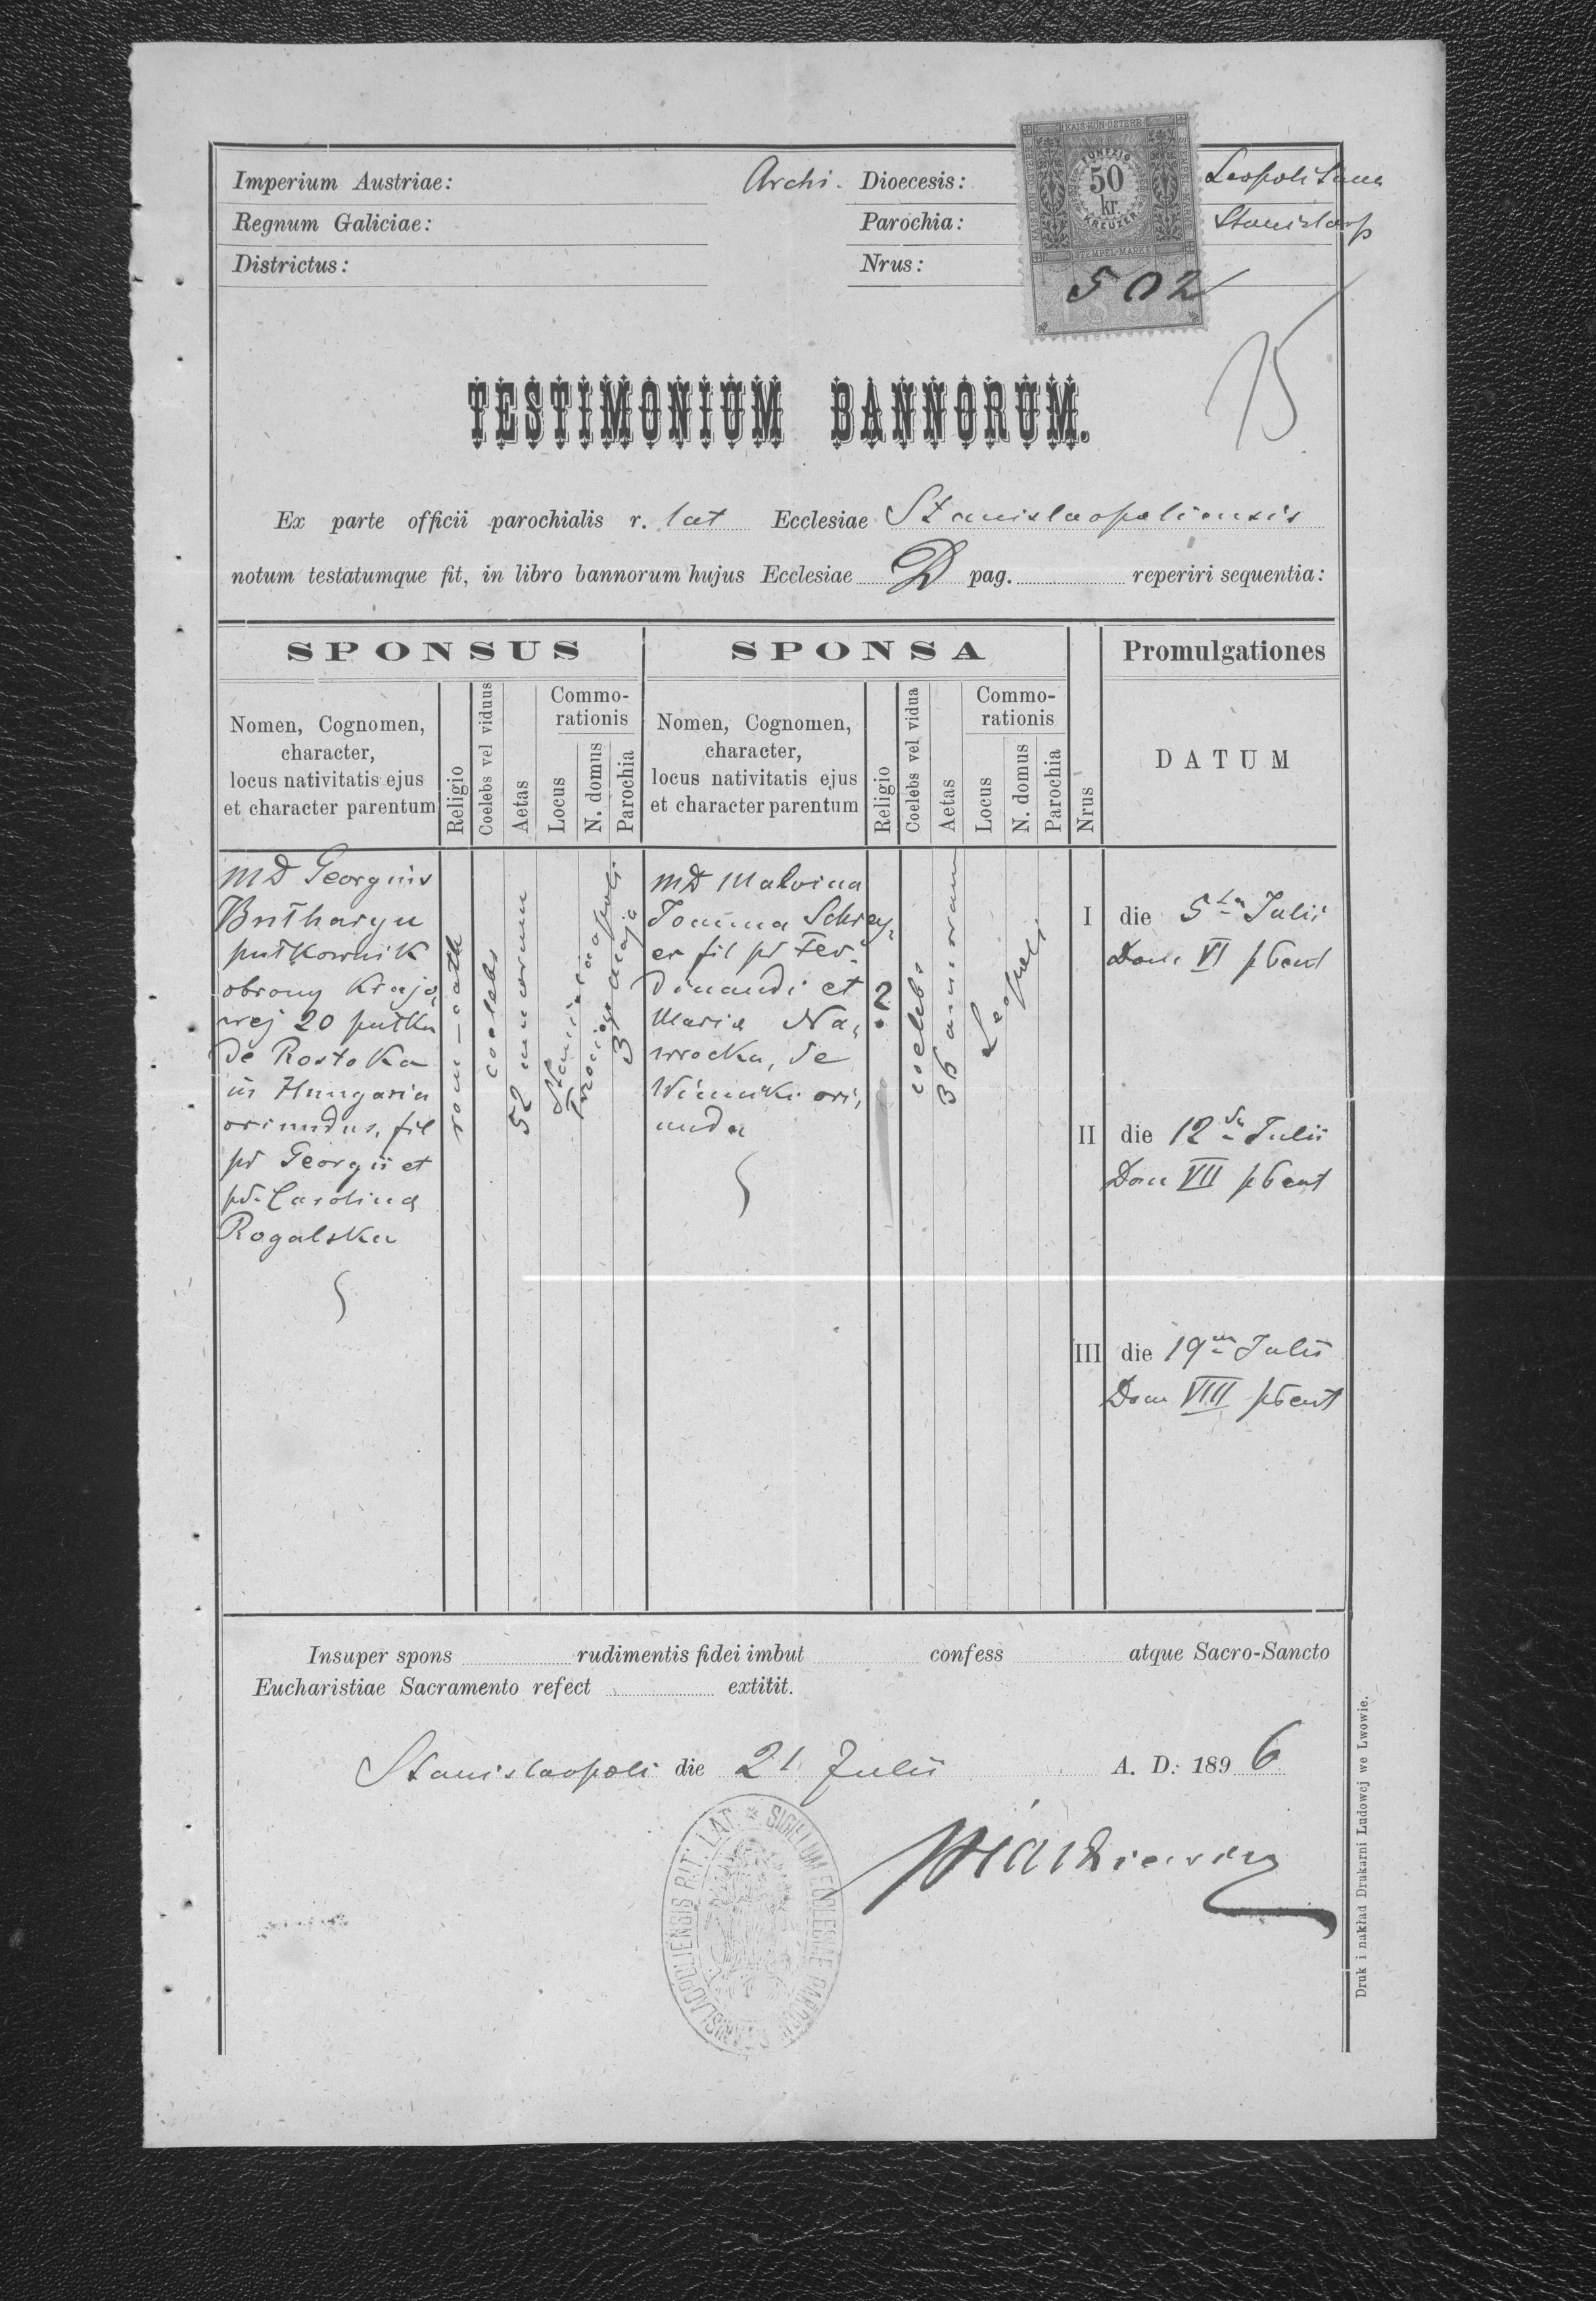 Imperium Austriae: Archi. Dioecesis: Leopolitana
Regnum Galiciae: Parochia: Stanislaop
Districtus: Nrus: 502
KAIS. KÖN. ÖSTERR.
FÜNFZIG
50
kr.
KREUZER
STEMPEL-MARKE
15
TESTIMONIUM BANNORUM.
Ex parte officii parochialis r. lat Ecclesiae Stanislaopoliensis
notum testatumque fit, in libro bannorum hujus Ecclesiae D pag. reperiri sequentia:
SPONSUS SPONSA Promulgationes
Nomen, Cognomen,
character,
locus nativitatis ejus
et character parentum
Religio
Coelebs vel viduus
Aetas
Commo-
rationis
Locus
N. domus
Parochia
Nomen, Cognomen,
character,
locus nativitatis ejus
et character parentum
Religio
Coelebs vel vidua
Aetas
Commo-
rationis
Locus
N. domus
Parochia
Nrus
DATUM
MD Georgius
pułkownik
obrony Krajo
wej 20 pułku
de Rostoka
in Hungaria
oriundus, fil
pd Georgii et
pd. Carolina
Rogalska
rom-cath
coelebs
52 annorum
Stanislaopoli
3 maja
MD Malvina
Joanna Schrey
er fil pd Fer-
dinandi et
Maria Na
wrocka, de
Winniki ori
unda
?
coelebs
36 annorum
Leopoli
I die 5ta Julii
Dom VI pPent
II die 12da Julii
Dom VII pPent
III die 19na Julii
Dom VIII pPent
Insuper spons rudimentis fidei imbut confess atque Sacro-Sancto
Eucharistiae Sacramento refect extitit.
Stanislaopoli die 21 Julii A. D.: 1896
SIGILLUM ECCLESIAE PAROCH. STANISLAOPOLIENSIS RIT. LAT.
Druk i nakład Drukarni Ludowej we Lwowie.